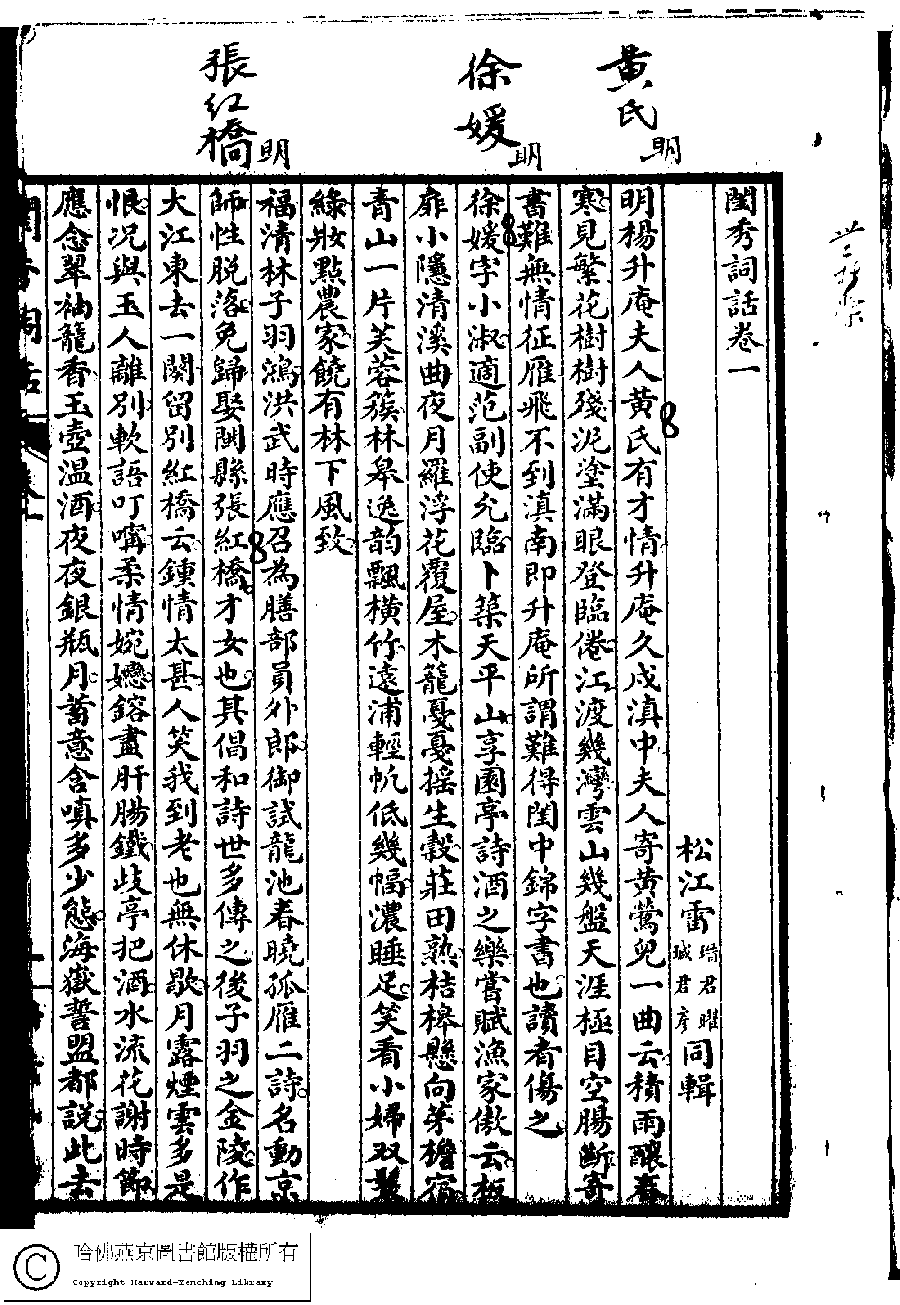 黃氏 明
徐媛 明
張紅橋 明
閨秀詞話卷一
松江雷 瑨君曜 瑊君彥 同輯
明楊升庵夫人黃氏有才情升庵久戍滇中夫人寄黃鶯兒一曲云積雨釀春
寒見繁花樹樹殘泥塗滿眼登臨倦江渡幾灣雲山幾盤天涯極目空腸斷寄
書難無情征雁飛不到滇南即升庵所謂難得閨中錦字書也讀者傷之
徐媛字小淑適范副使允臨卜築天平山享園亭詩酒之樂嘗賦漁家傲云板
扉小隱清溪曲夜月羅浮花覆屋木籠戞戞搖生穀莊田熟桔槔懸向茅檐宿
青山一片芙蓉簇林皋逸韵飄橫竹遠浦輕帆低幾幅濃睡足笑看小婦双鬟
綠妝點農家饒有林下風致
福清林子羽鴻洪武時應召為膳部員外郎御試龍池春曉孤雁二詩名動京
師性脫落免歸娶閩縣張紅橋才女也其倡和詩世多傳之後子羽之金陵作
大江東去一闋留別紅橋云鍾情太甚人笑我到老也無休歇月露煙雲多是
恨况與玉人離別軟語叮嚀柔情婉戀鎔盡肝腸鐵歧亭把酒水流花謝時節
應念翠袖籠香玉壺溫酒夜夜銀瓶月蓄意含嗔多少態海嶽誓盟都說此去
哈佛燕京圖書館版權所有
Copyright Harvard-Yenching Library